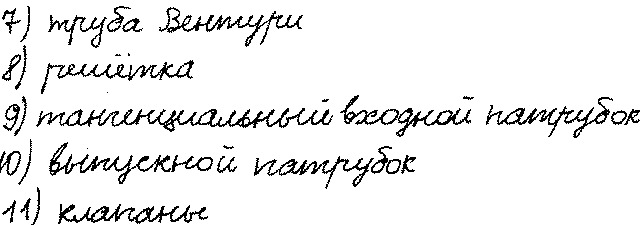 7) труба Вентури
8) решётка
9) тангенциальный входной патрубок
10) выпускной патрубок
11) клапаны